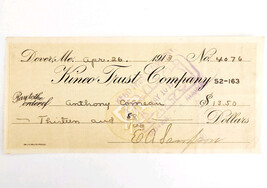 Dover, Me. Apr. 26. 1919 No. 4076
Kineo Trust Company 52-163
Pay to the
order of Anthony Comeau $13.50
Thirteen and 50/100 Dollars
E A Sampson